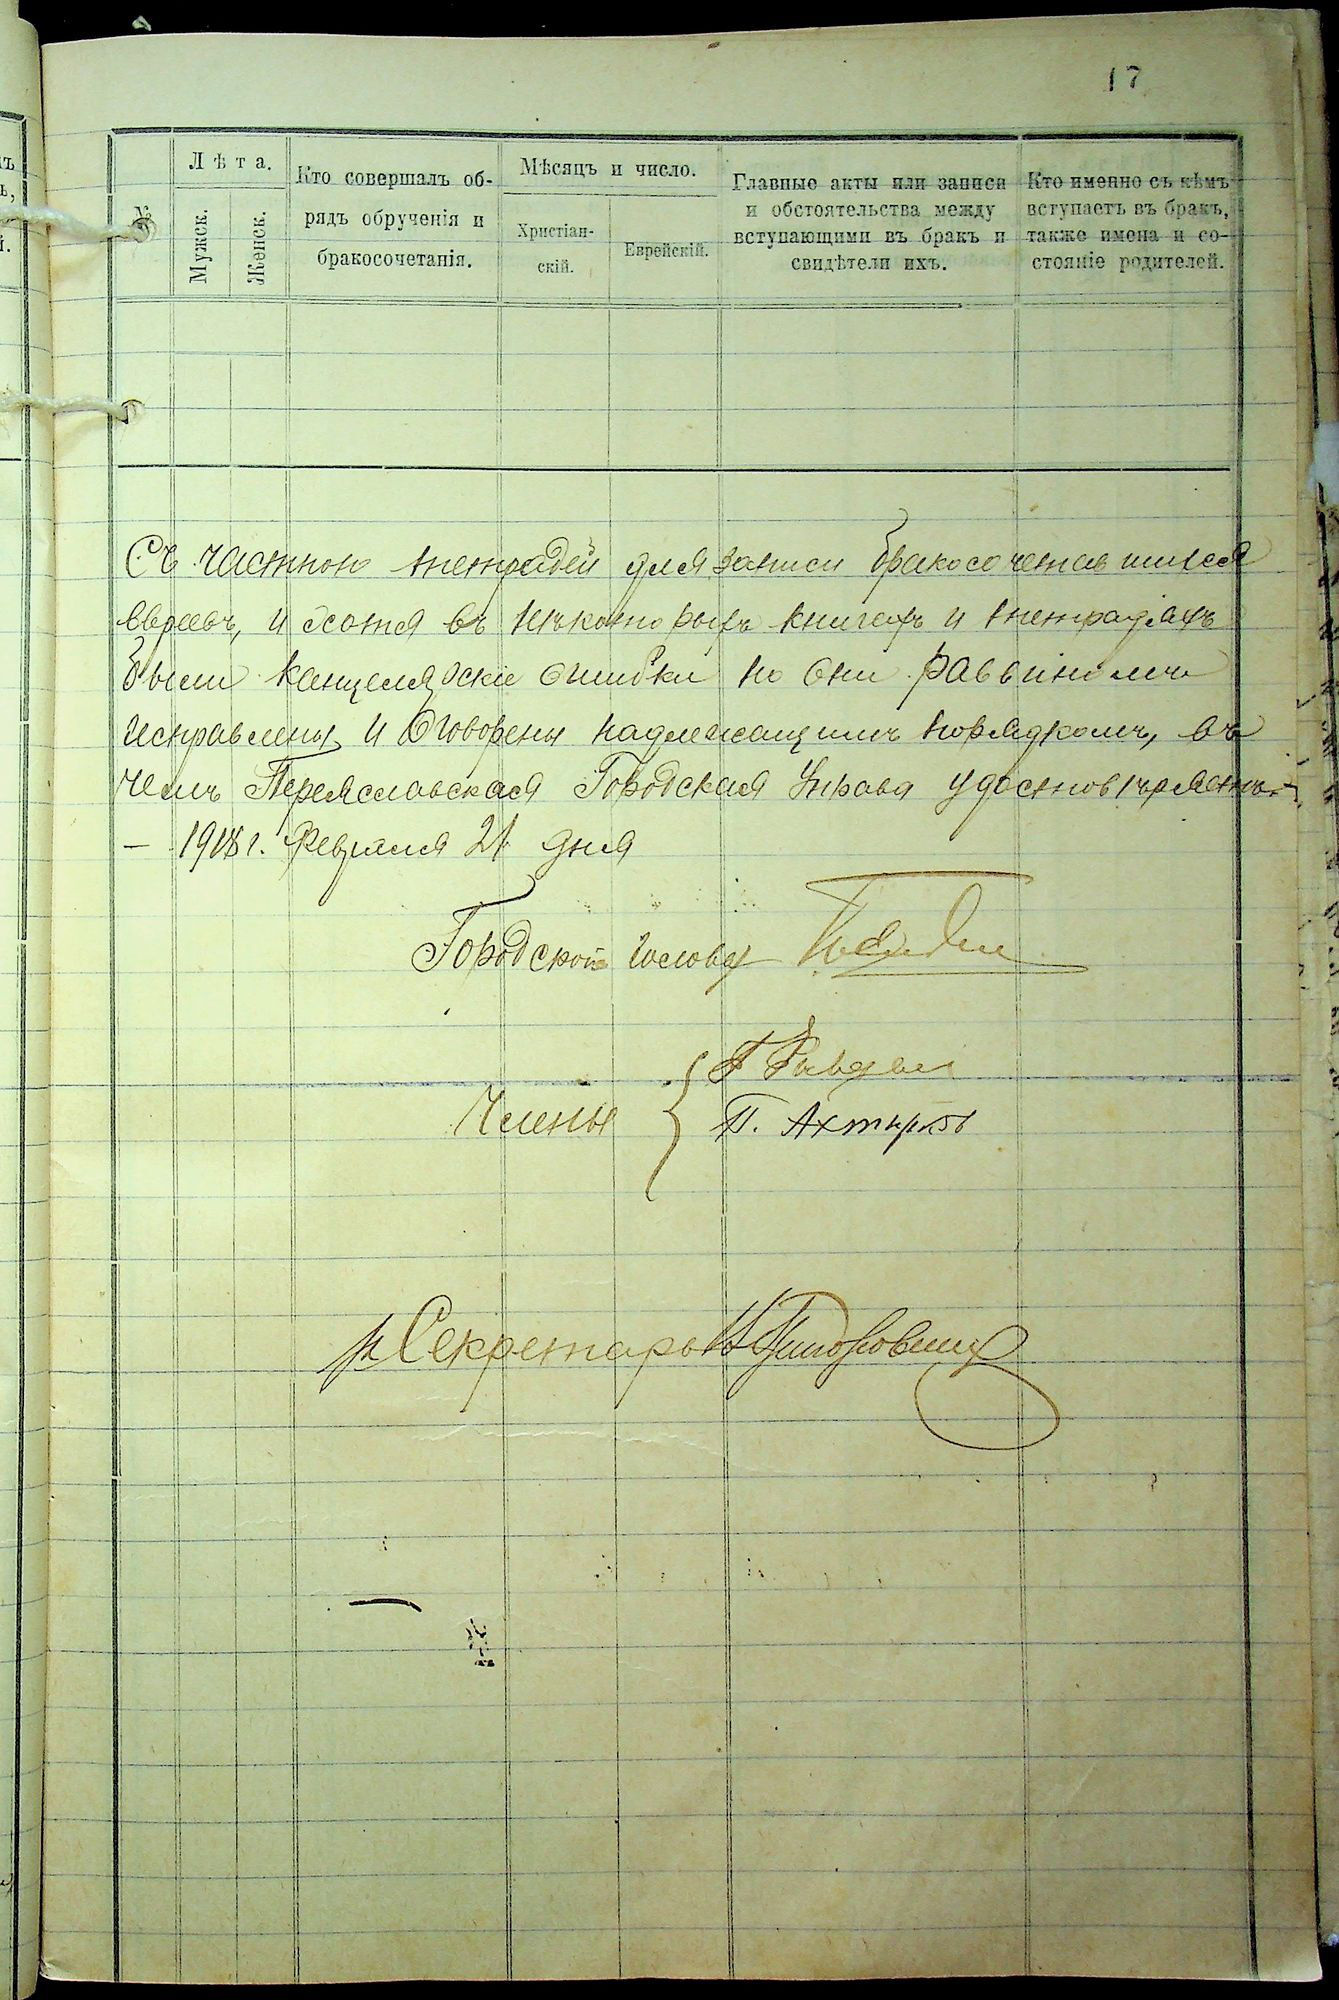 17
№
Лѣта.
Мужск.
Женск.
Кто совершалъ об-
рядъ обрученія и
бракосочетанія.
Мѣсяцъ и число.
Христіан-
скій.
Еврейскій.
Главные акты или записи
и обстоятельства между
вступающими въ бракъ и
свидѣтели ихъ.
Кто именно съ кѣмъ
вступаетъ въ бракъ,
также имена и со-
стояніе родителей.
Съ частною тетрадей для записи бракосочетавшихся
евреевъ, и хотя въ нѣкоторыхъ книгахъ и тетрадяхъ
были канцелярскіе ошибки но они раввиномъ
исправлены и оговорены надлежащимъ порядкомъ, въ
чемъ Переяславская Городская Управа удостовѣряетъ
— 1918 г. Февраля 21 дня
Городской голова
Члены
П. Ахтырко
Секретарь